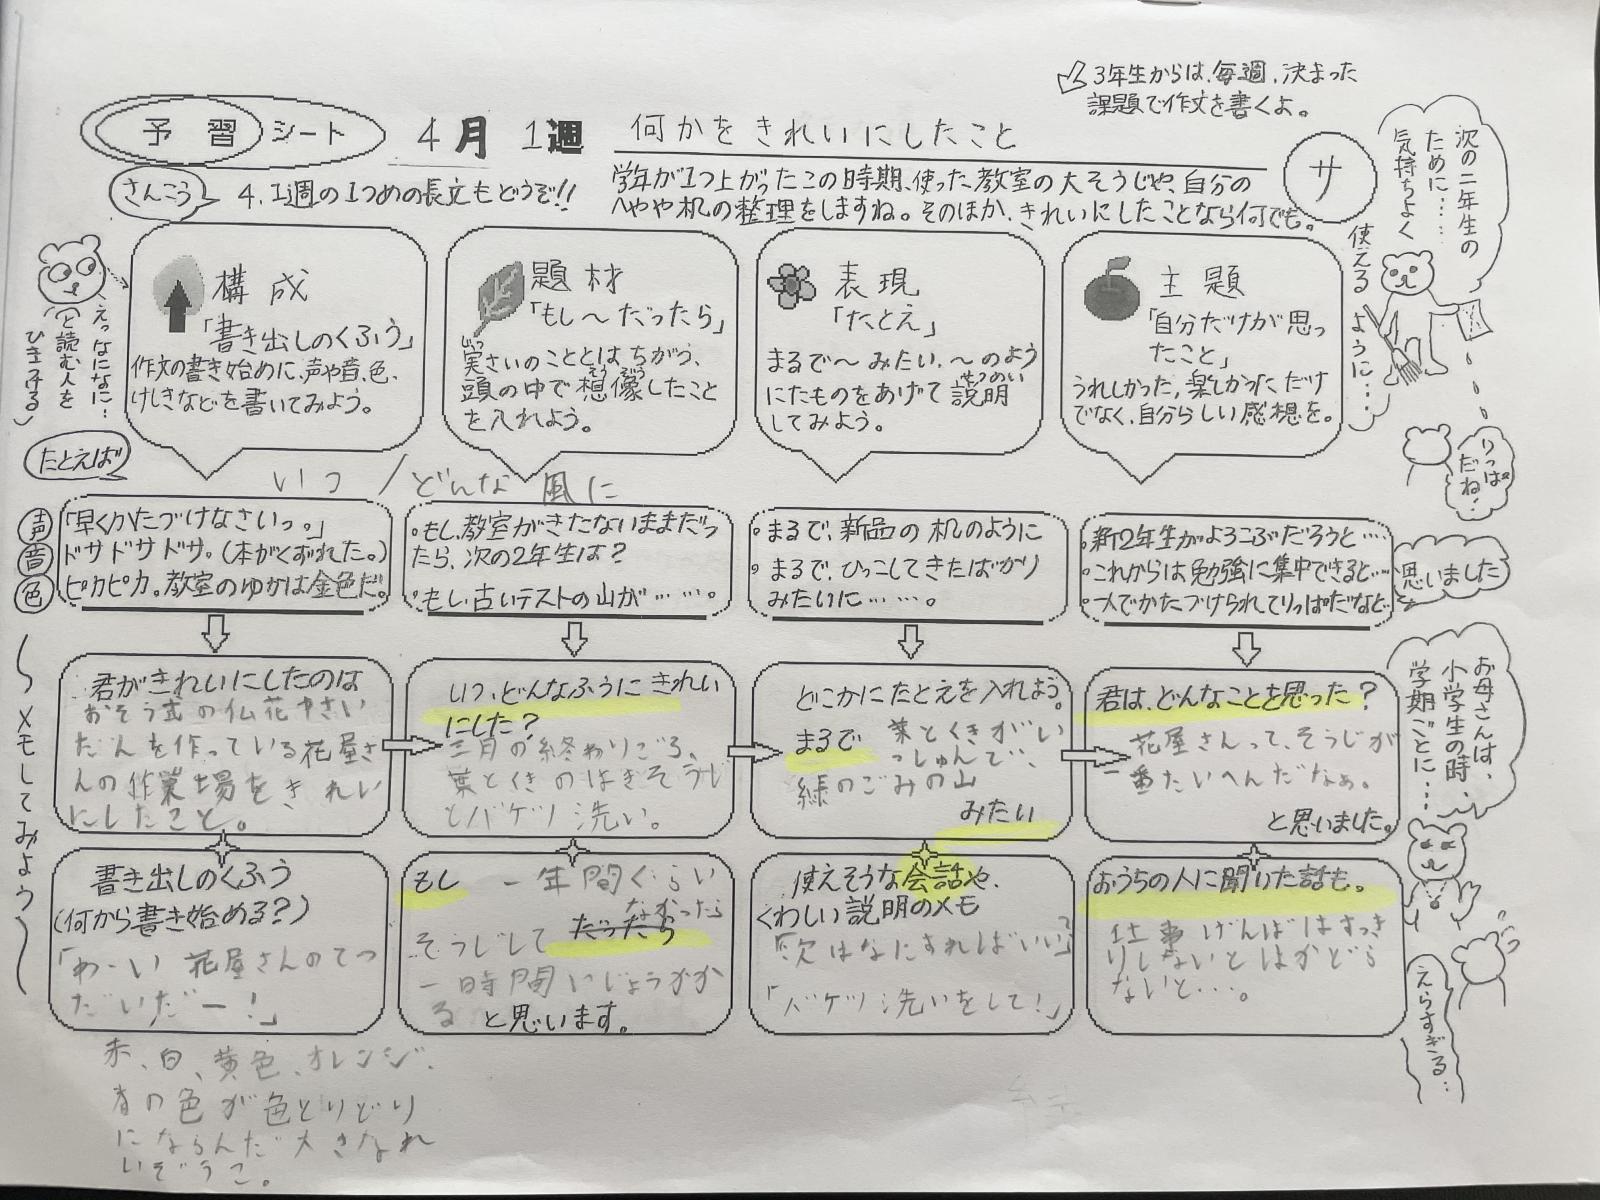 3年生からは、毎週、決まった
課題で作文を書くよ。
予習シート
4月 1週 何かをきれいにしたこと
さんこう
4.1週の1つめの長文もどうぞ!!
学年が1つ上がったこの時期、使った教室の大そうじや、自分の
へやや机の整理をしますね。そのほか、きれいにしたことなら何でも。
サ
次の二年生の
ために……
気持ちよく
使える
ように…
りっぱ
だね!
えっなになに…
と読む人を
ひきつける
構成
「書き出しのくふう」
作文の書き始めに、声や音、色、
けしきなどを書いてみよう。
題材
「もし〜だったら」
実さいのこととはちがう、
頭の中で想像したこと
を入れよう。
表現
「たとえ」
まるで〜みたい、〜のよう
にたものをあげて説明
してみよう。
主題
「自分だけが思っ
たこと」
うれしかった、楽しかっただけ
でなく、自分らしい感想を。
たとえば
いつ/どんな風に
声
音
色
「早くかたづけなさいっ。」
ドサドサドサ。(本がくずれた。)
ピカピカ。教室のゆかは金色だ。
・もし、教室がきたないままだっ
たら、次の2年生は?
・もし、古いテストの山が……。
・まるで、新品の机のように
・まるで、ひっこしてきたばかり
みたいに……。
・新2年生がよろこぶだろうと…
・これからは勉強に集中できると…
・一人でかたづけられてりっぱだなと…
思いました
メモしてみよう
君がきれいにしたのは
おそう式の仏花やさい
だんを作っている花屋さ
んの作業場をきれい
にしたこと。
いつ、どんなふうにきれい
にした?
三月の終わりごろ、
葉とくきのはきそうじ
とバケツ洗い。
どこかにたとえを入れよう。
まるで 葉とくきがい
っしゅんで、
緑のごみの山
みたい
君は、どんなことを思った?
花屋さんって、そうじが
一番たいへんだなぁ。
と思いました。
お母さんは、
小学生の時、
学期ごとに…
書き出しのくふう
(何から書き始める?)
「わーい花屋さんのてつ
だいだー!」
もし 一年間ぐらい
なかったら
そうじして だったら
一時間いじょうかか
る と思います。
使えそうな会話や、
くわしい説明のメモ
「次はなにすればいい?」
「バケツ洗いをして!」
おうちの人に聞いた話も。
仕事げんばはすっき
りしないとはかどら
ないと…。
えらすぎる…
赤、白、黄色、オレンジ、
青の色が色とりどり
にならんだ大きなれ
いぞうこ。